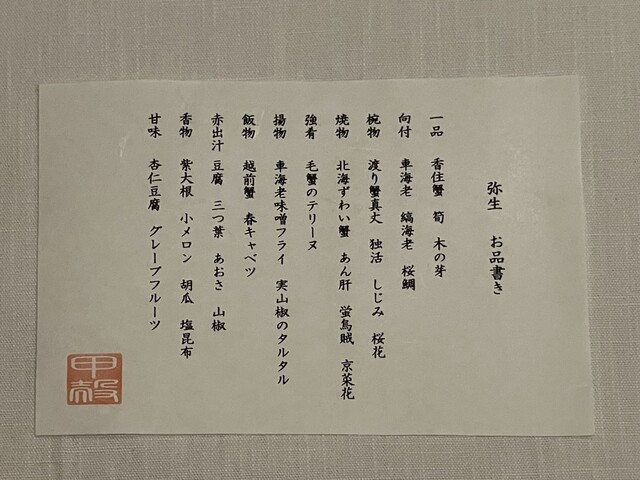 弥生 お品書き
一品 香住蟹 筍 木の芽
向付 車海老 縞海老 桜鯛
椀物 渡り蟹真丈 独活 しじみ 桜花
焼物 北海ずわい蟹 あん肝 蛍烏賊 京菜花
強肴 毛蟹のテリーヌ
揚物 車海老味噌フライ 実山椒のタルタル
飯物 越前蟹 春キャベツ
赤出汁 豆腐 三つ葉 あおさ 山椒
香物 紫大根 小メロン 胡瓜 塩昆布
甘味 杏仁豆腐 グレープフルーツ
甲殻